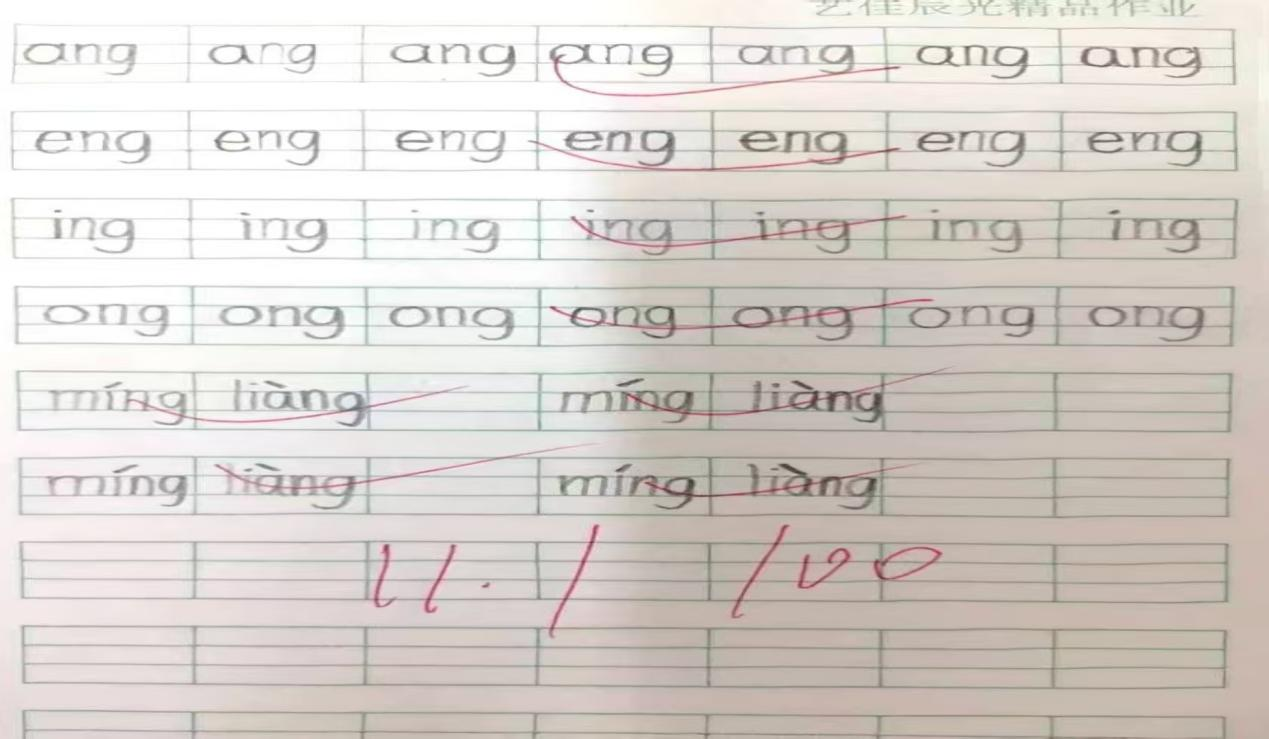 艺佳辰光精品作业
ang ang ang ang ang ang ang
eng eng eng eng eng eng eng
ing ing ing ing ing ing ing
ong ong ong ong ong ong ong
míng liàng míng liàng
míng liàng míng liàng
11.1 100